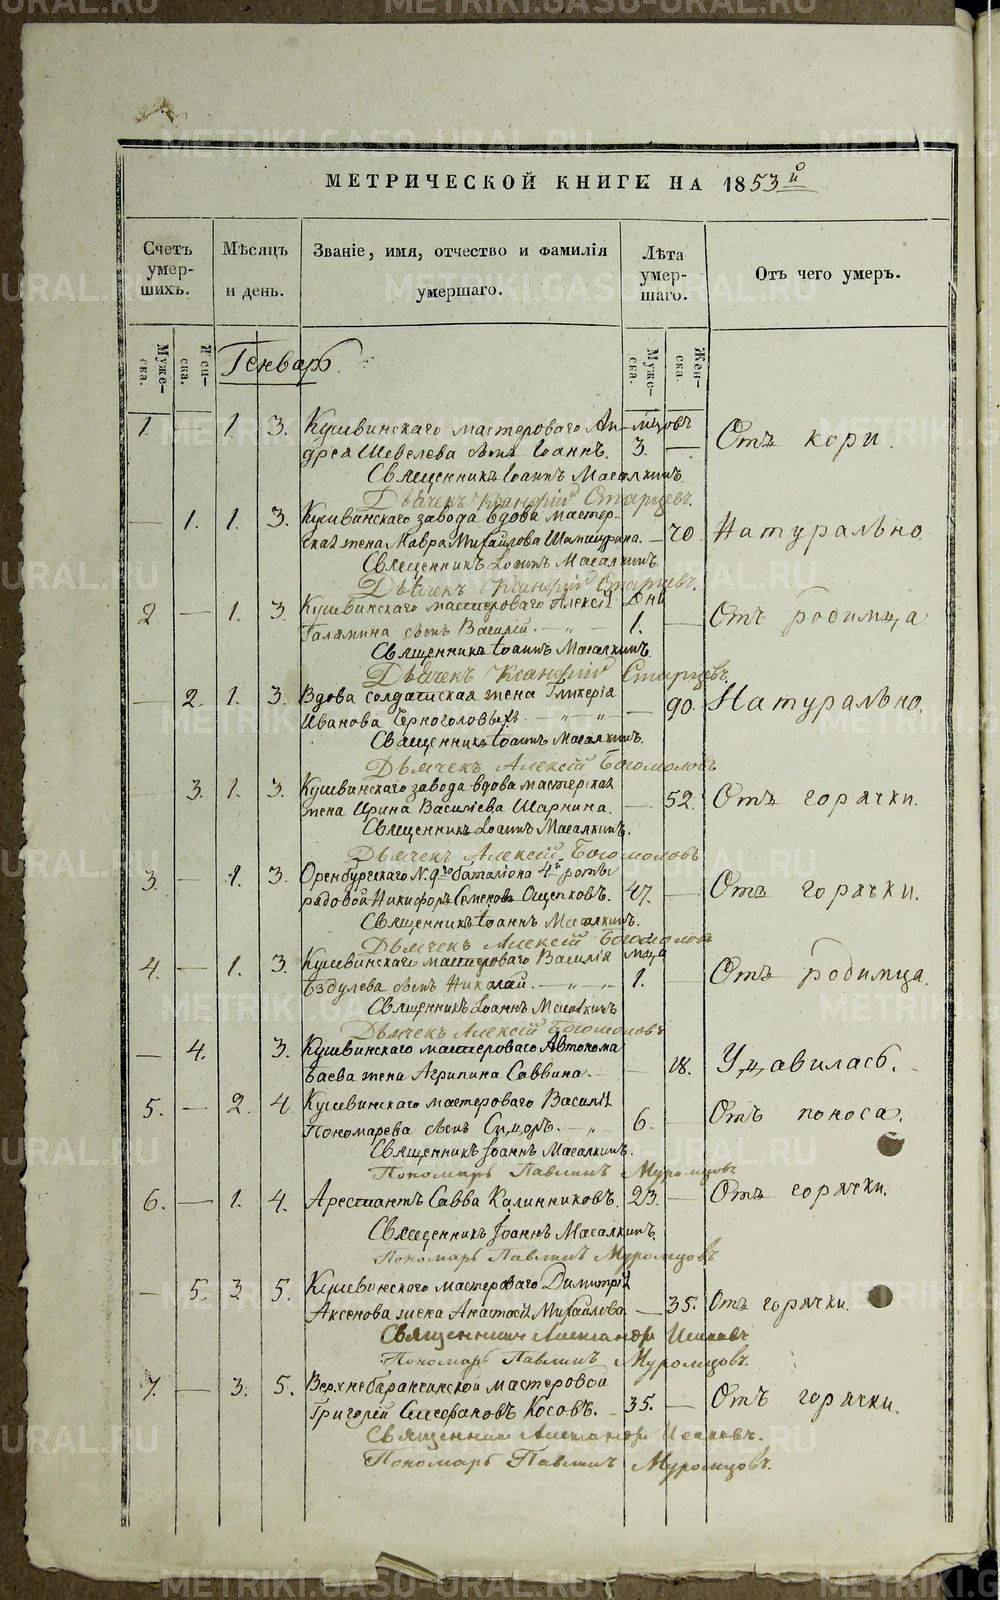 МЕТРИЧЕСКОЙ КНИГЕ НА 1853й
Счетъ умер- шихъ. Мѣсяцъ и день. Званіе, имя, отчество и фамилія умершаго. Лѣта умер- шаго. Отъ чего умеръ.
Муже- ска. Жен- ска. Генварь. Муже- ска. Жен- ска.
1. — 1. 3. Кушвинскаго мастероваго Ан- мцовъ
дрея Шевелева сынъ Іоаннъ. 3. — Отъ кори.
Священникъ Іоаннъ Масалкинъ.
Дьячекъ Старцевъ.
— 1. 1. 3. Кушвинскаго завода вдова мастер-
ская жена Мавра Михайлова — 70. Натурально.
Священникъ Іоаннъ Масалкинъ.
Дьячекъ Старцевъ.
2. — 1. 3. Кушвинскаго мастероваго Алексѣя Дни
Галямина сынъ Василій. — „ — 1. — Отъ родимца.
Священникъ Іоаннъ Масалкинъ.
Дьячекъ Старцевъ.
— 2. 1. 3. Вдова солдатская жена Гликерія
Иванова Черноголовыхъ. — „ — „ — — 90. Натурально.
Священникъ Іоаннъ Масалкинъ.
Дьячекъ Алексій Богомоловъ
— 3. 1. 3. Кушвинскаго завода вдова мастерская
жена Ирина Василіева Шарнина. — 52. Отъ горячки.
Священникъ Іоаннъ Масалкинъ.
Дьячекъ Алексій Богомоловъ
3. — 1. 3. Оренбургскаго № 9го баталіона 4й роты
рядовой Никифоръ Семеновъ Ощепковъ. 47. — Отъ горячки.
Священникъ Іоаннъ Масалкинъ.
Дьячекъ Алексій Богомоловъ
4. — 1. 3. Кушвинскаго мастероваго Василія мца
Бздулева сынъ Николай. — „ — „ — 1. — Отъ родимца.
Священникъ Іоаннъ Масалкинъ
Дьячекъ Алексій Богомоловъ
— 4. 3. Кушвинскаго мастероваго Автонома
Баева жена Агрипина Саввина. — — 18. Удавилась.
5. — 2. 4. Кушвинскаго мастероваго Василія
Пономарева сынъ Сидоръ. — „ — 6. — Отъ поноса.
Священникъ Іоаннъ Масалкинъ.
Пономарь Павлинъ Муромцовъ
6. — 1. 4. Арестантъ Савва Калинниковъ. 23. — Отъ горячки.
Священникъ Іоаннъ Масалкинъ.
Пономарь Павлинъ Муромцовъ
— 5. 3 5. Кушвинскаго мастероваго Димитрія
Аксенова жена Анастасія Михайлова — 35. Отъ горячки.
Священникъ Александръ
Пономарь Павлинъ Муромцовъ.
7. — 3. 5. Верхнебаранчинской мастеровой
Григорій Стефановъ Косовъ. 35. — Отъ горячки.
Священникъ Александръ
Пономарь Павлинъ Муромцовъ.
METRIKI.GASO-URAL.RU